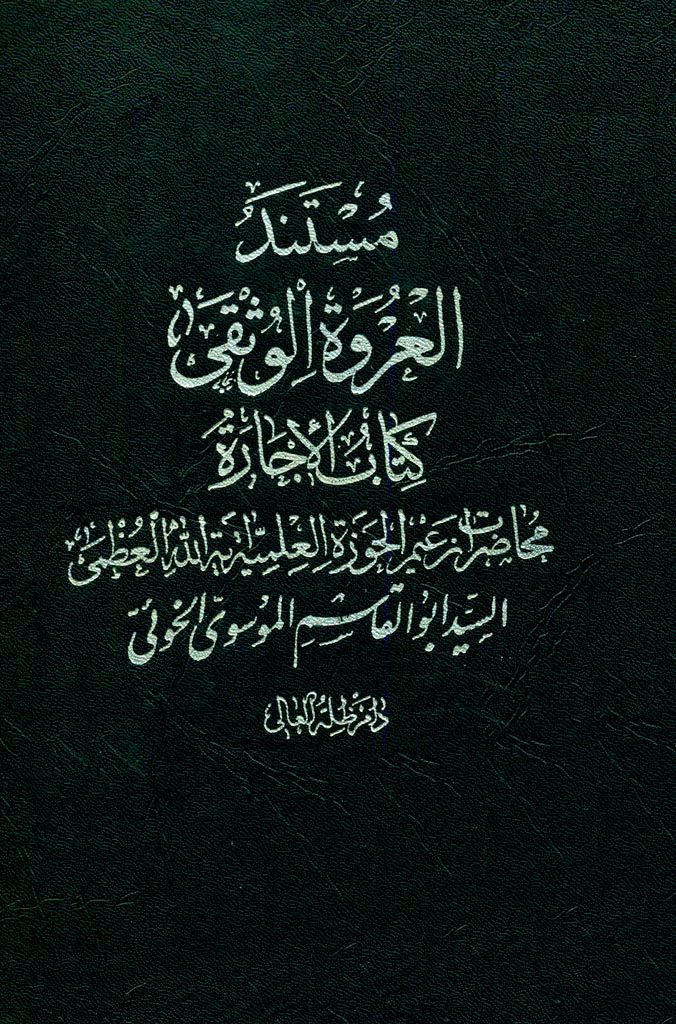 مُسْتَنَدُ
الْعُرْوَةِ الْوُثْقَىٰ
كِتَابُ الْإِجَارَةِ
مُحَاضَرَات زَعِيم الْحَوْزَةِ الْعِلْمِيَّةِ آيَةِ اللهِ الْعُظْمَىٰ
السَّيِّد ابُو الْقَاسِمِ الْمُوسَوِيّ الْخُوئِيّ
دَامَ ظِلُّهُ الْعَالِي